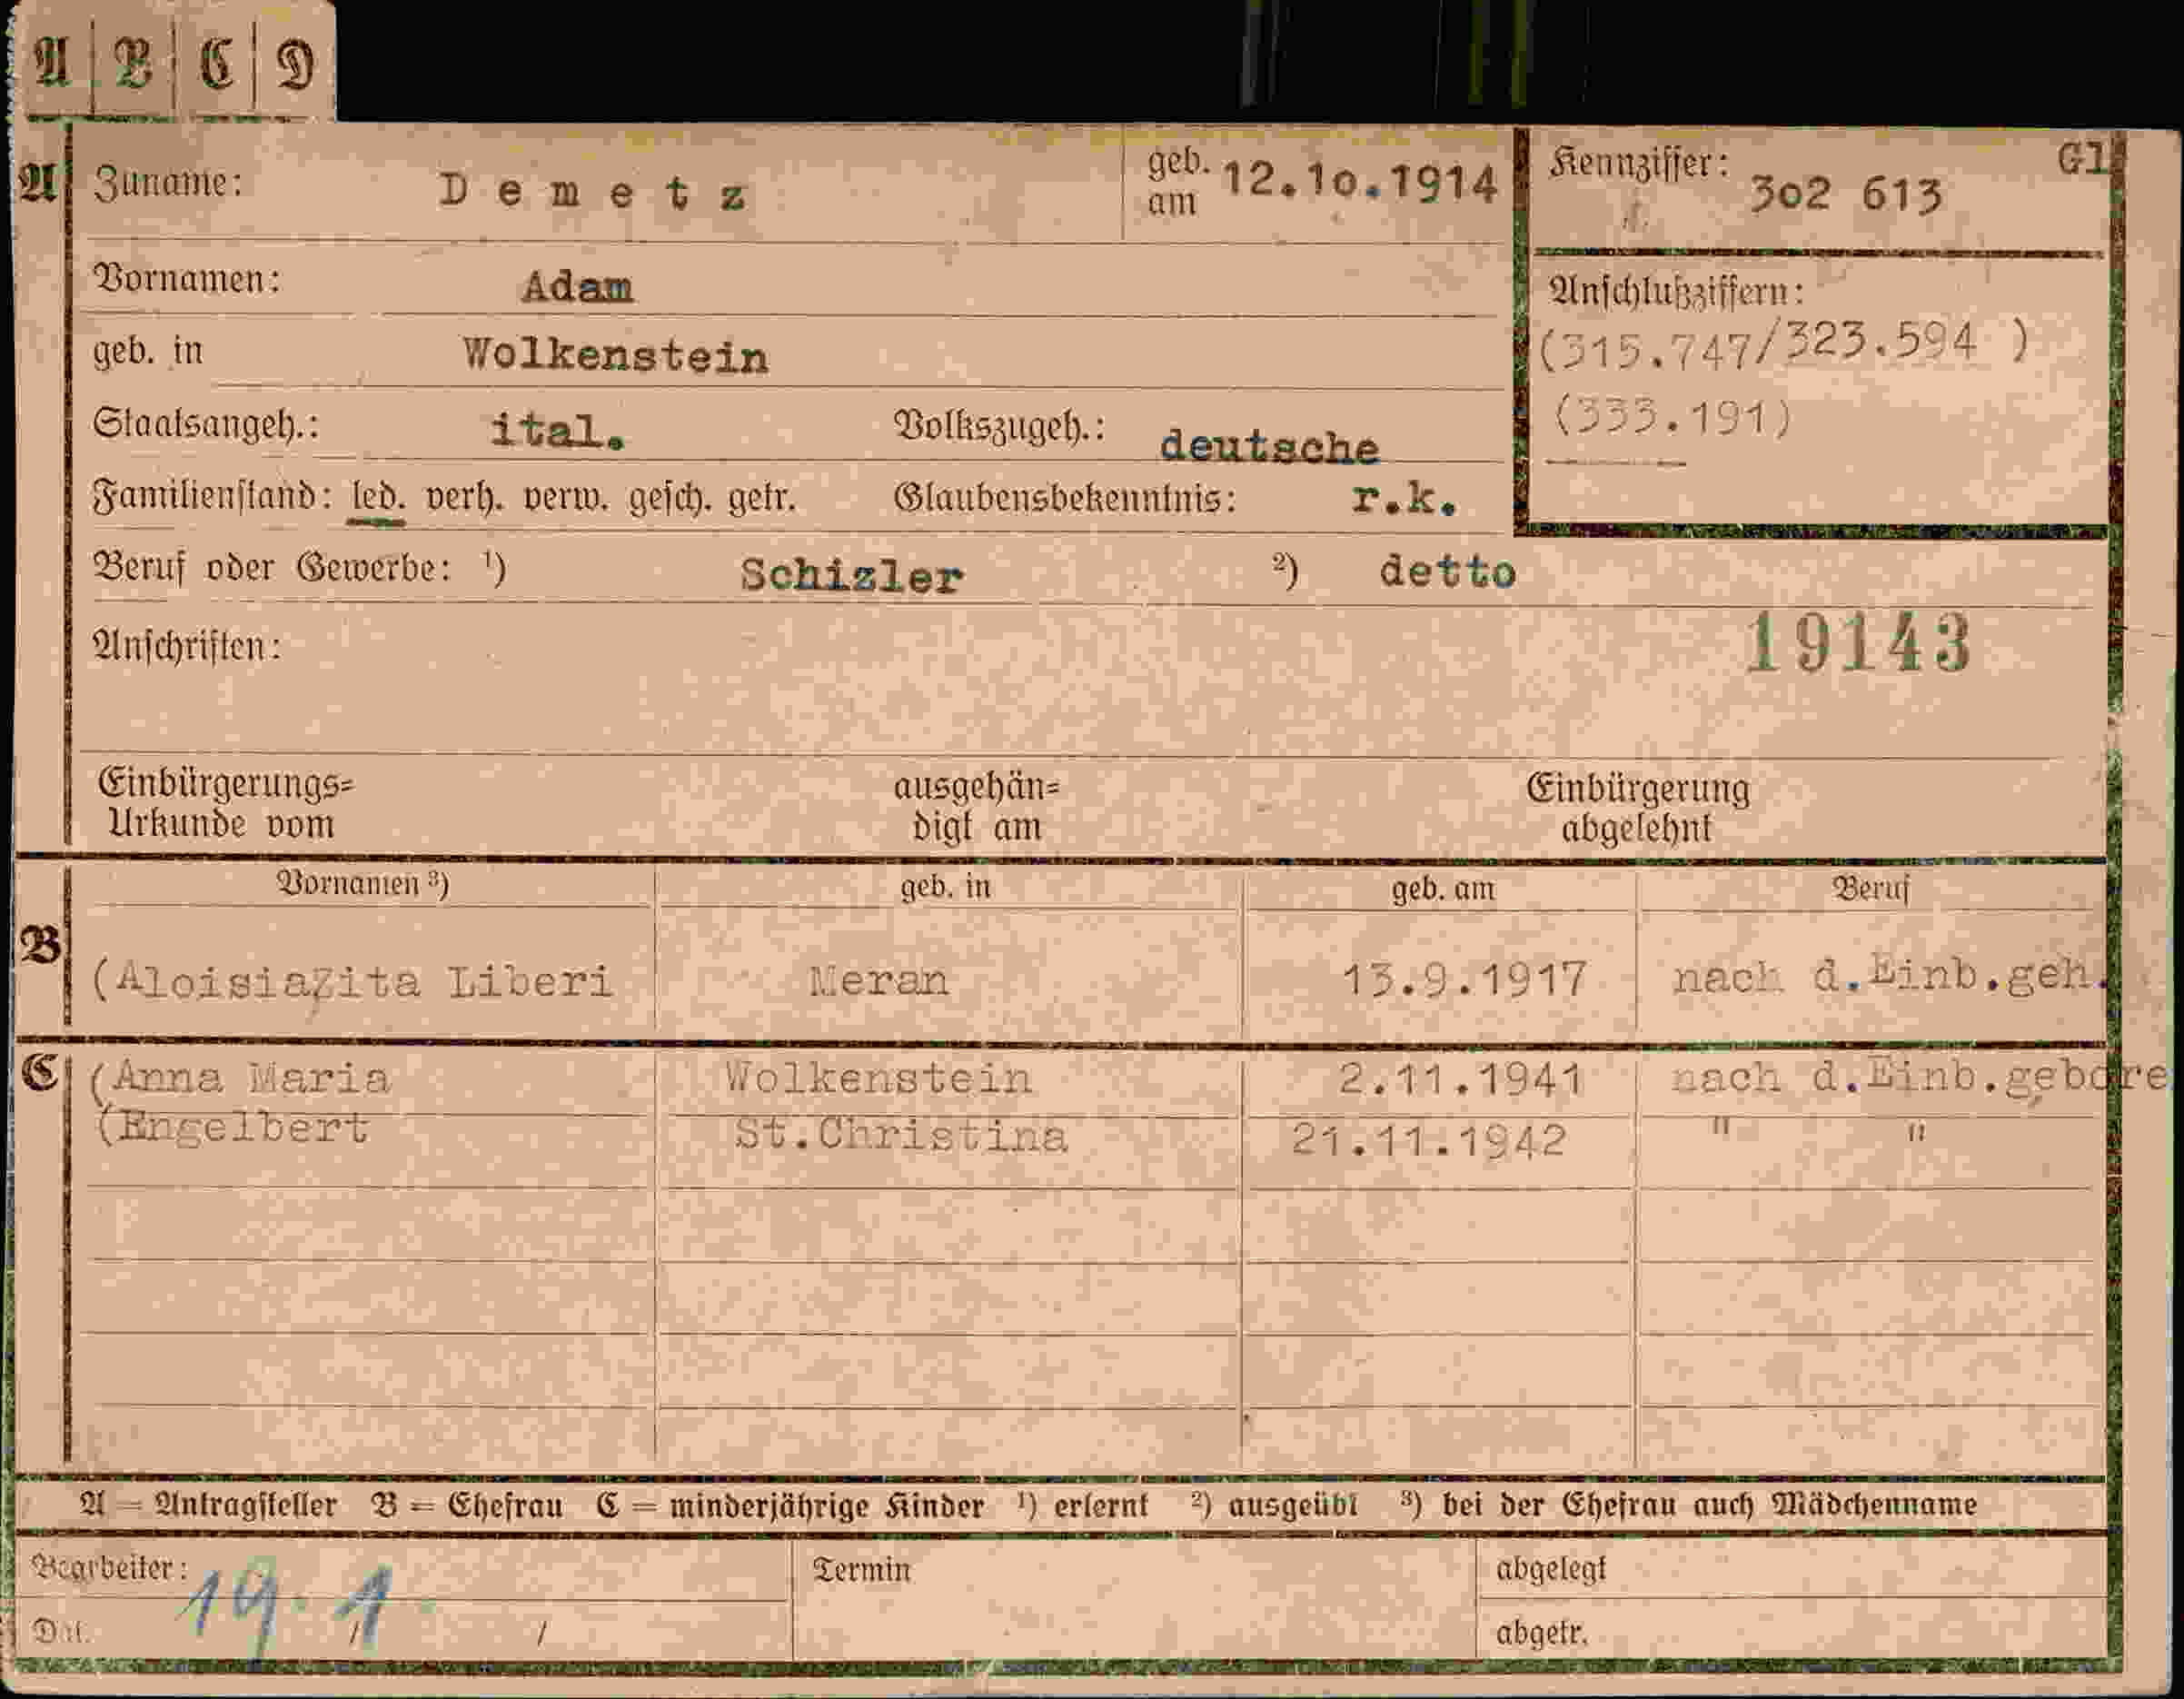 A B C D
A Zuname: Demetz geb. am 12.10.1914 Kennziffer: 302 613 Gl
Vornamen: Adam
Anschlußziffern:
geb. in Wolkenstein (315.747/323.594 )
Staatsangeh.: ital. Volkszugeh.: deutsche (333.191)
Familienstand: led. verh. verw. gesch. getr. Glaubensbekenntnis: r.k.
Beruf oder Gewerbe: 1) Schizler 2) detto
Anschriften: 19143
Einbürgerungs= ausgehän= Einbürgerung
Urkunde vom digt am abgelehnt
Vornamen 3) geb. in geb. am Beruf
B (AloisiaZita Liberi Meran 13.9.1917 nach d.Einb.geh.
C (Anna Maria Wolkenstein 2.11.1941 nach d.Einb.gebore
(Engelbert St.Christina 21.11.1942 " "
A = Antragsteller B = Ehefrau C = minderjährige Kinder 1) erlernt 2) ausgeübt 3) bei der Ehefrau auch Mädchenname
Bearbeiter: 19.1. Termin abgelegt
/ / abgetr.